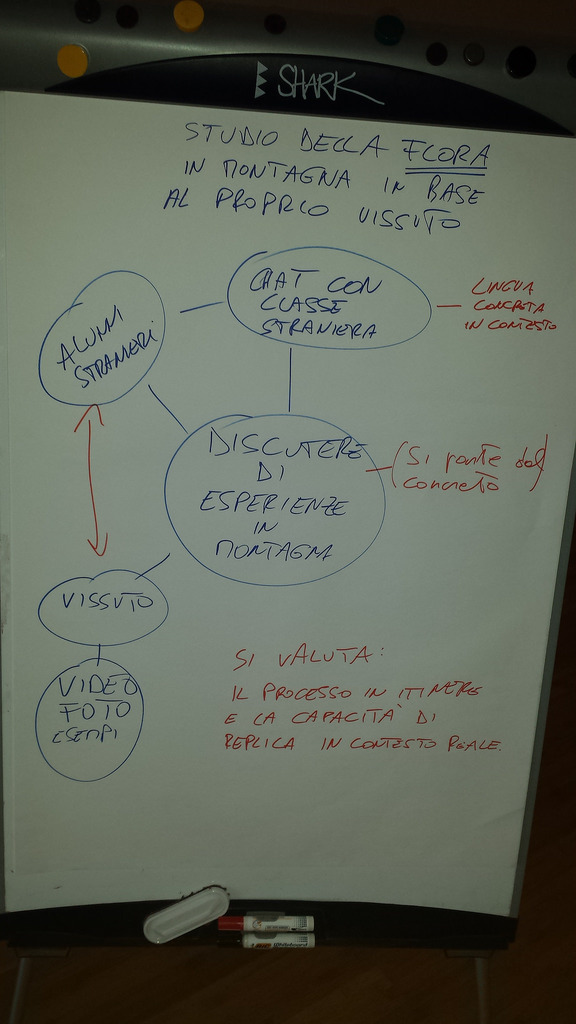 SHARK
STUDIO DELLA FLORA
IN MONTAGNA IN BASE
AL PROPRIO VISSUTO
CHAT CON
CLASSE
STRANIERA
LINGUA
CONCRETA
IN CONTESTO
ALUNNI
STRANIERI
DISCUTERE
DI
ESPERIENZE
IN
MONTAGNA
(Si parte dal
concreto)
VISSUTO
VIDEO
FOTO
ESEMPI
SI VALUTA:
IL PROCESSO IN ITINERE
E LA CAPACITÀ DI
REPLICA IN CONTESTO REALE.